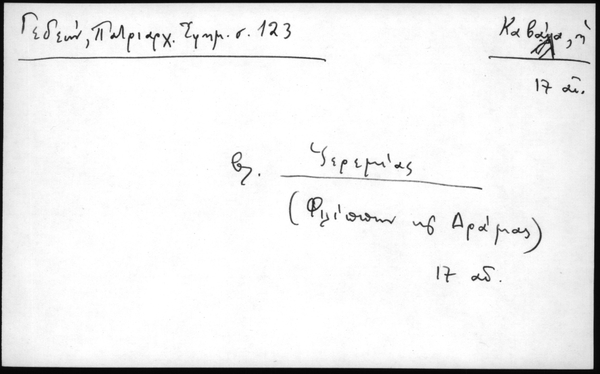 Γεδεών, Πατριαρχ. Σημ. σ. 123
Καβάλα, ἡ
17 αἰ.
βλ. Ἱερεμίας
(Φιλίππων κ̀ Δράμας)
17 αἰ.